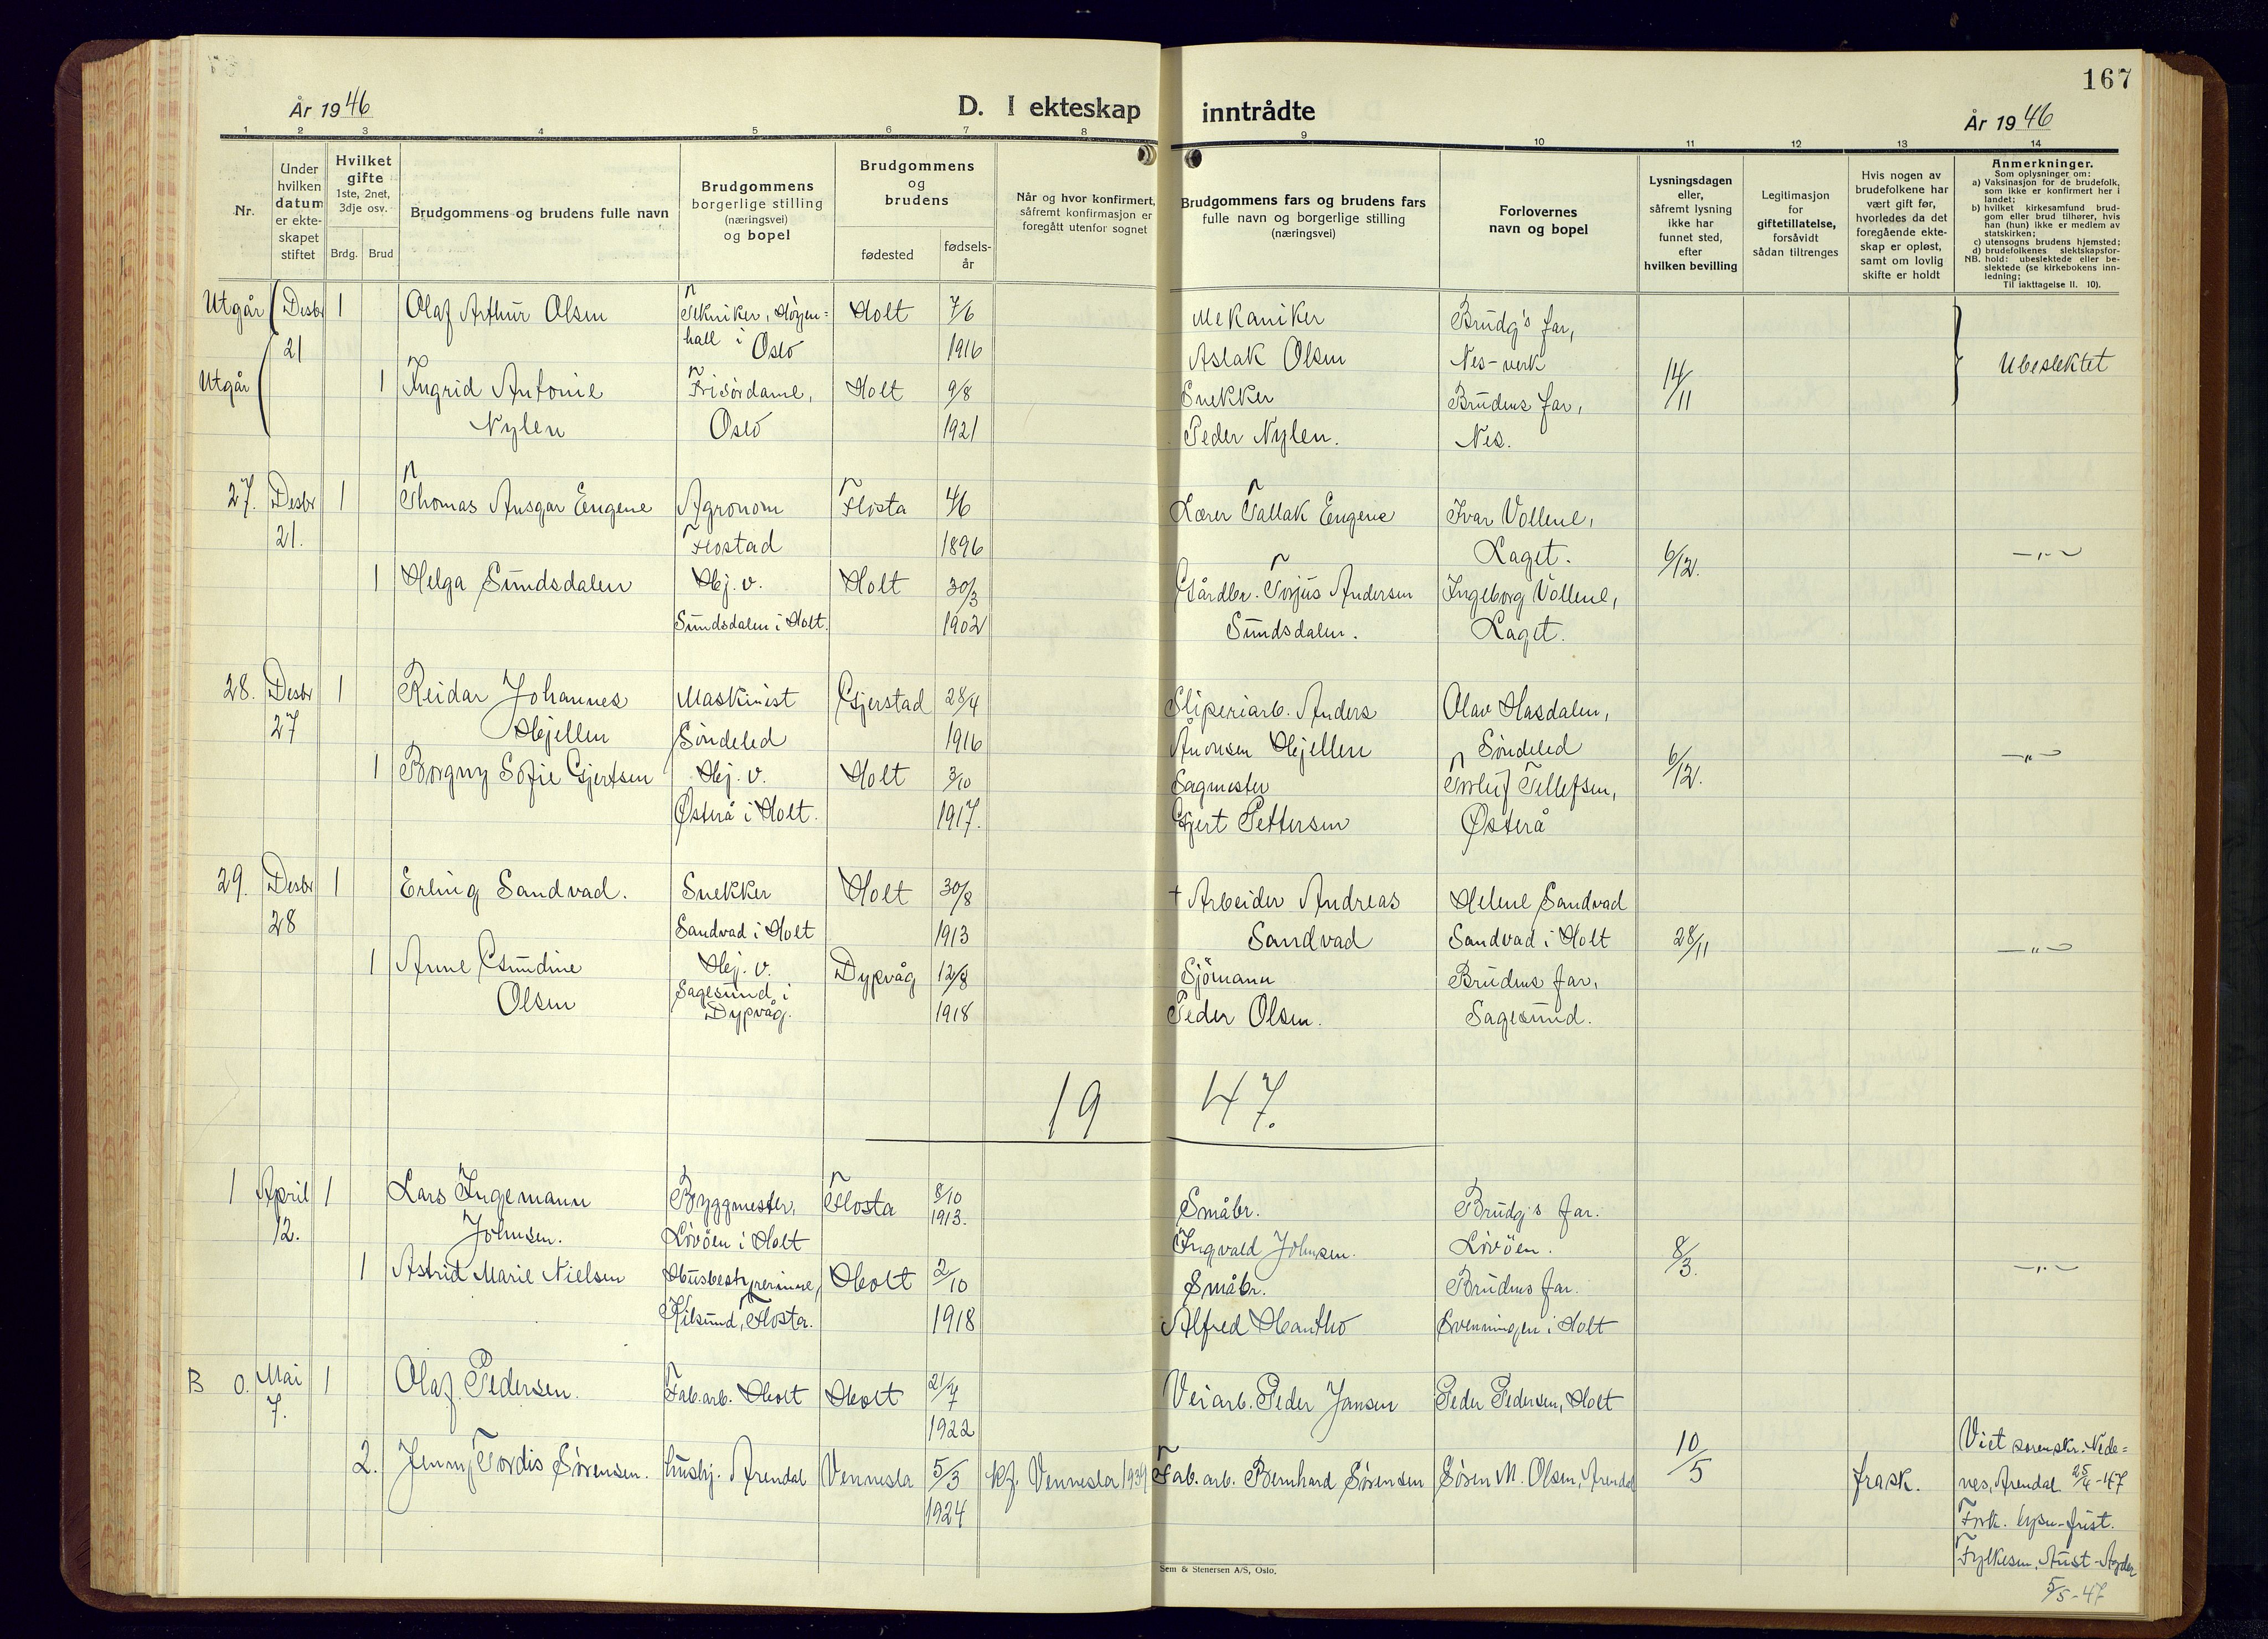 167
År 1946
D. I ekteskap inntrådte
År 1946
1 2 3 4 5 6 7 8 9 10 11 12 13 14
Nr.
Under
hvilken
datum
er ekte-
skapet
stiftet
Hvilket
gifte
1ste, 2net,
3dje osv.
Brdg. Brud
Brudgommens og brudens fulle navn
Brudgommens
borgerlige stilling
(næringsvei)
og bopel
Brudgommens
og
brudens
fødested
fødsels-
år
Når og hvor konfirmert,
såfremt konfirmasjon er
foregått utenfor sognet
Brudgommens fars og brudens fars
fulle navn og borgerlige stilling
(næringsvei)
Forlovernes
navn og bopel
Lysningsdagen
eller,
såfremt lysning
ikke har
funnet sted,
efter
hvilken bevilling
Legitimasjon
for
giftetillatelse,
forsåvidt
sådan tiltrenges
Hvis nogen av
brudefolkene har
vært gift før,
hvorledes da det
foregående ekte-
skap er opløst,
samt om lovlig
skifte er holdt
Anmerkninger.
Som oplysninger om:
a) Vaksinasjon for de brudefolk,
som ikke er konfirmert her i
landet;
b) hvilket kirkesamfund brud-
gom eller brud tilhører, hvis
han (hun) ikke er medlem av
statskirken;
c) utensogns brudens hjemsted;
d) brudefolkenes slektskapsfor-
NB. hold: ubeslektede eller be-
slektede (se kirkebokens inn-
ledning;
Til iakttagelse II. 10).
Utgår Desbr 1 Olaf Arthur Olsen Tekniker, Holt 7/6 Mekaniker Brudg's far,
21 hall i Oslo 1916 Aslak Olsen Nes-verk 14/11 Ubeslektet
Utgår 1 Ingrid Antonie Frisørdame, Holt 9/8 Snekker Brudens far,
Nylen Oslo 1921 Peder Nylen. Nes.
27. Desbr 1 Thomas Ansgar Eugene Agronom Flosta 4/6 Lærer Tallak Eugene Ivar Vollene,
21. Flostad 1896 Laget. 6/12. —"—
1 Helga Sundsdalen Hj. v. Holt 30/3 Gårdbr. Torjus Andersen Ingeborg Vollene,
Sundsdalen i Holt. 1902 Sundsdalen. Laget.
28. Desbr 1 Reidar Johannes Maskinist Gjerstad 28/4 Sliperiarb. Anders Olav Hasdalen,
27 Hjellen Søndeled 1916 Hjellen Søndeled —"—
1 Borgny Sofie Gjertsen Hj. v. Holt 3/10 Sagmester Torleif Tellefsen, 6/12.
Østerå i Holt. 1917. Gjert Pettersen Østerå
29. Desbr 1 Erling Sandvad. Snekker Holt 30/8 † Arbeider Andreas Helene Sandvad
28 Sandvad i Holt 1913 Sandvad Sandvad i Holt 28/11 —"—
1 Anne Gundine Hj. v. Dypvåg 12/8 Sjömann Brudens far,
Olsen Sagesund i Dypvåg. 1918 Peder Olsen. Sagesund.
19 47.
1 April 1 Lars Ingemann Byggmester, Flosta 8/10 1913. Småbr. Brudg's far.
12. Johnsen. Lövöen i Holt Ingvald Johnsen. Lövöen. 8/3. —"—
1 Astrid Marie Nielsen Husbestyrerinne, Holt 2/10 Småbr. Brudens far.
Kilsund, Flosta. 1918 Alfred Hantho Svenningen i Holt
B 0. Mai 1 Olaf Pedersen. Fab.arb. Holt Holt 21/7 Veiarb. Peder Jansen Peder Pedersen, Holt
7. 1922
2. Jenny Tordis Sørensen. husbj. Arendal Vennesla 5/3 kf. Vennesla 1939 Fab. arb. Bernhard Sørensen Sören M. Olsen, Arendal 10/5 frask.
1924
Viet sorenskr. i Nede=
nes, Arendal 25/4-47
Fork. lysn-frist.
Fylkesm. Aust-Agder
5/5-47
Sem & Stenersen A/S, Oslo.